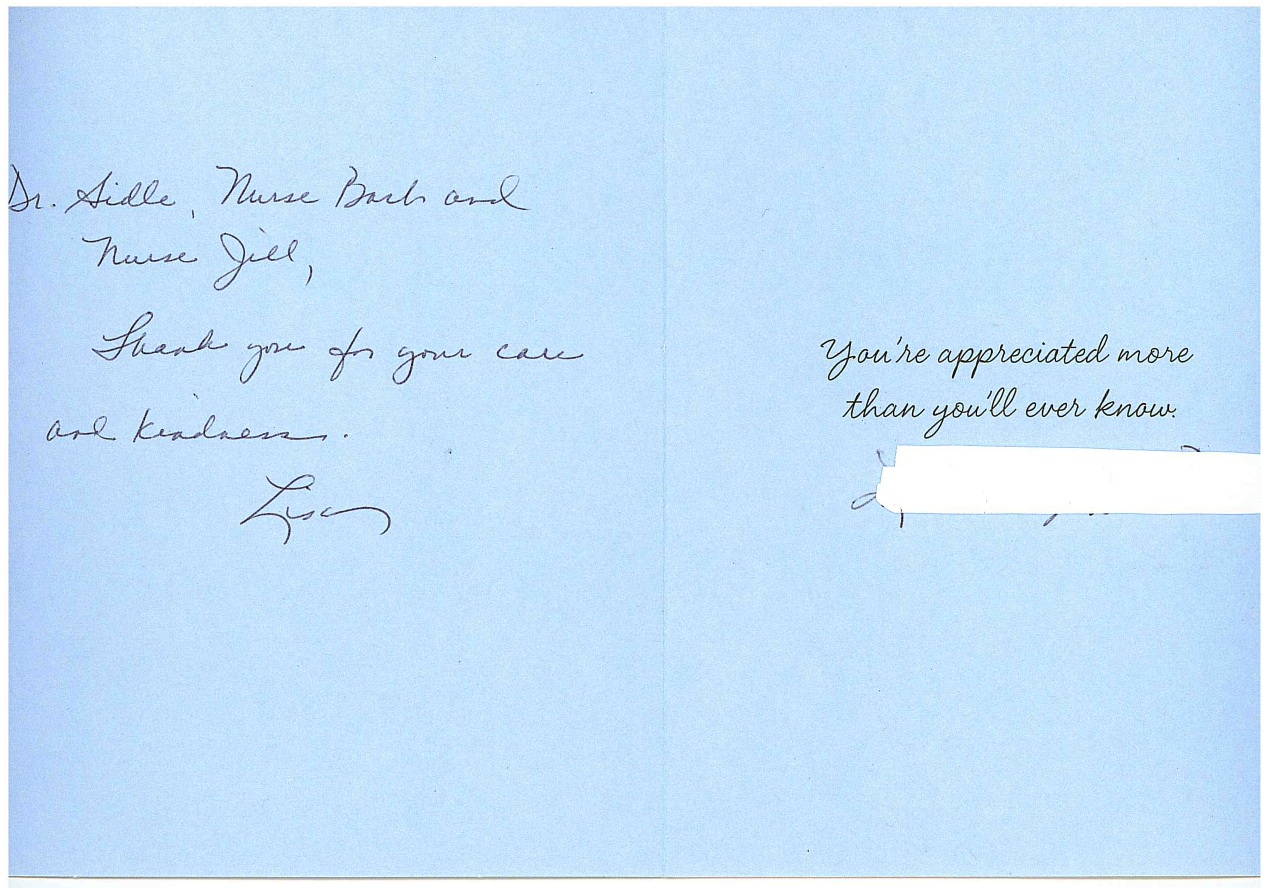 Dr. Sidle, Nurse Barb and
Nurse Jill,
Thank you for your care
and kindness.
Lisa
You're appreciated more
than you'll ever know.